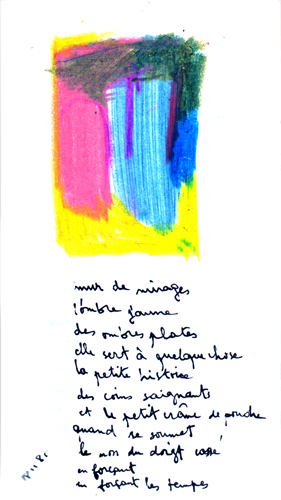 mur de mirages
l'ombre jaune
des ombres plates
elle sert à quelque chose
la petite histoire
des coins saignants
et le petit crâme de poudre
quand se soumet
le non du doigt cassé
en forçant
en forçant les tempes